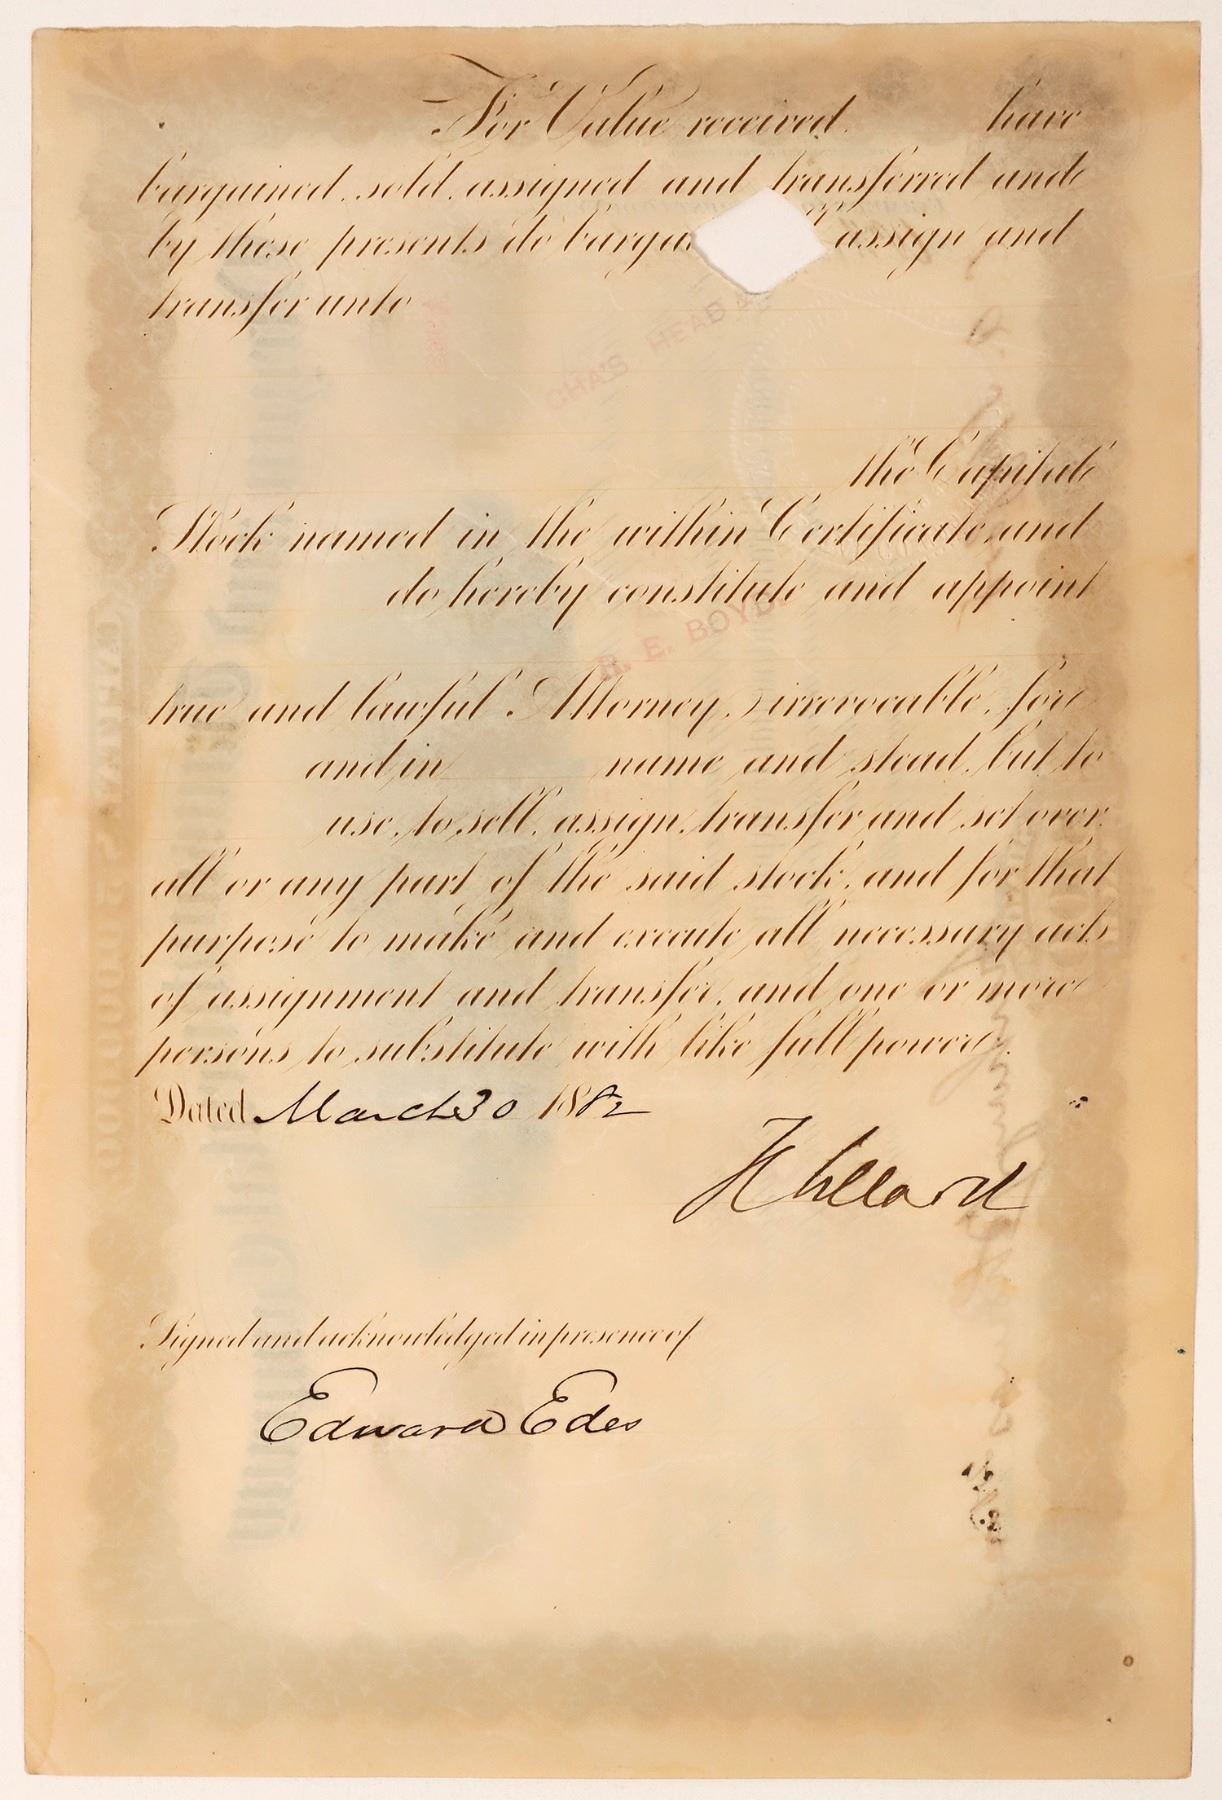 For Value received have
bargained, sold, assigned and transferred and
by these presents do barga assign and
transfer unto
CHAS. HEAD &
the Capital
Stock named in the within Certificate and
do hereby constitute and appoint
H. E. BOYD
true and lawful Attorney, irrevocable, for
and in name and stead, but to
use, to sell, assign, transfer and set over
all or any part of the said stock, and for that
purpose to make and execute all necessary acts
of assignment and transfer, and one or more
persons to substitute with like full power.
Dated March 30 1882
Signed and acknowledged in presence of
Edward Edes